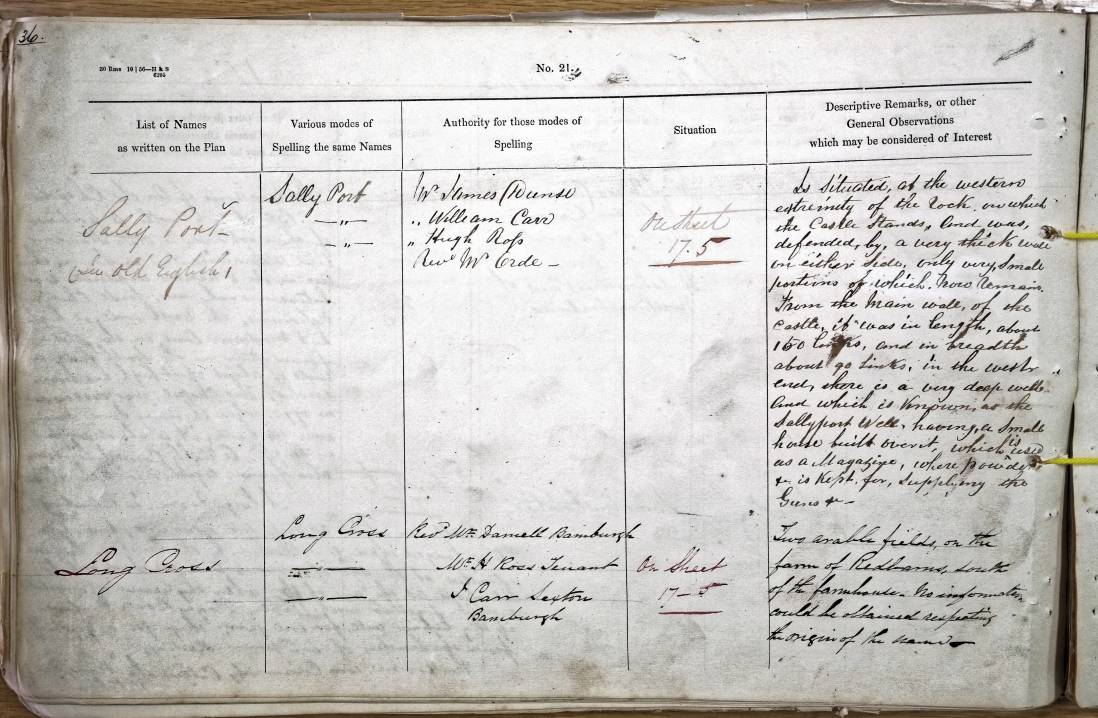 36.
No. 21.
List of Names
as written on the Plan
Various modes of
Spelling the same Names
Authority for those modes of
Spelling
Situation
Descriptive Remarks, or other
General Observations
which may be considered of Interest
Sally Port
in old English
Sally Port
—„—
—„—
Mr James
„ William Carr
„ Hugh Ross
Revd Mr Orde –
On Sheet
17.5
Is Situated, at the western
extremity of the rock on which
the Castle Stands, and was,
defended, by, a very thick wall
on either Side, only very Small
portions of which. Now remain.
From the Main wall, of the
Castle, it was in length, about
150 links, and in breadth
about 90 links, in the west
end, there is a very deep well
and which is Known, as the
Sallyport Well, having a Small
house built over it, which is used
as a Magazine, where powder
&c is Kept, for, Supplying the
Guns &c –
Long Cross
Long Cross
—„—
—„—
Revd Mr Darnell Bamburgh
Mr H Ross Tenant
J Carr Sexton
Bamburgh
On Sheet
17–5
Two arable fields, on the
farm of Redbarns, south
of the farmhouse. No information
could be obtained respecting
the origin of the name